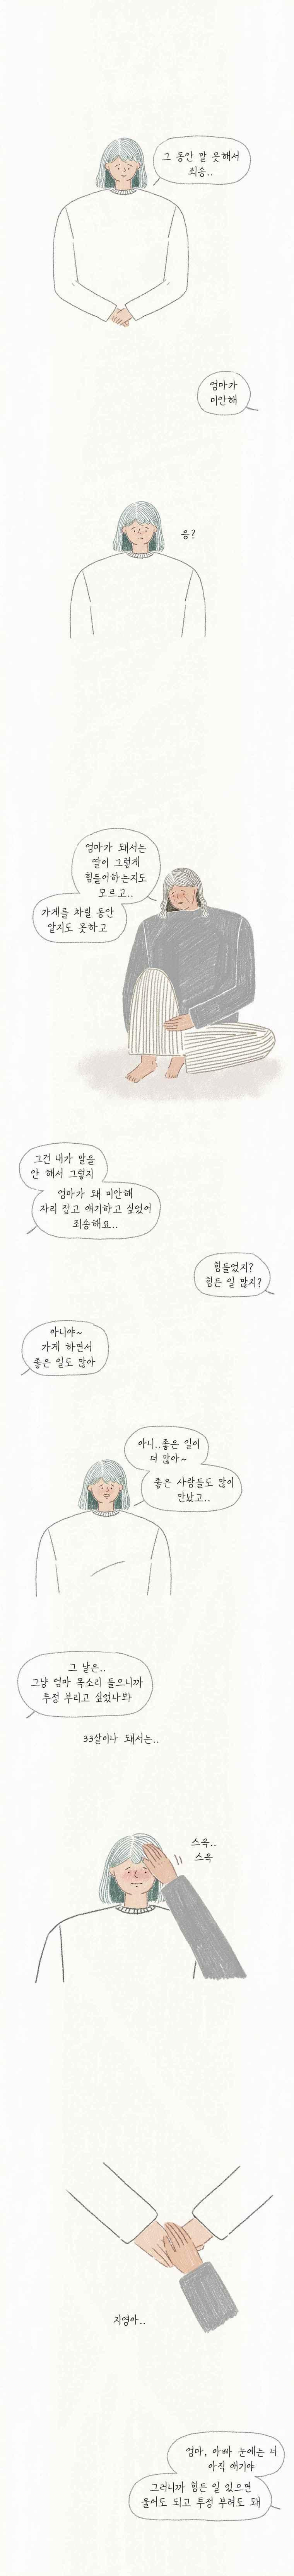 그 동안 말 못해서
죄송..
엄마가
미안해
응?
엄마가 돼서는
딸이 그렇게
힘들어하는지도
모르고..
가게를 차릴 동안
알지도 못하고
그건 내가 말을
안 해서 그렇지
엄마가 왜 미안해
자리 잡고 얘기하고 싶었어
죄송해요..
힘들었지?
힘든 일 많지?
아니야~
가게 하면서
좋은 일도 많아
아니..좋은 일이
더 많아~
좋은 사람들도 많이
만났고..
그 날은..
그냥 엄마 목소리 들으니까
투정 부리고 싶었나봐
33살이나 돼서는..
스윽..
스윽
지영아..
엄마, 아빠 눈에는 너
아직 애기야
그러니까 힘든 일 있으면
울어도 되고 투정 부려도 돼